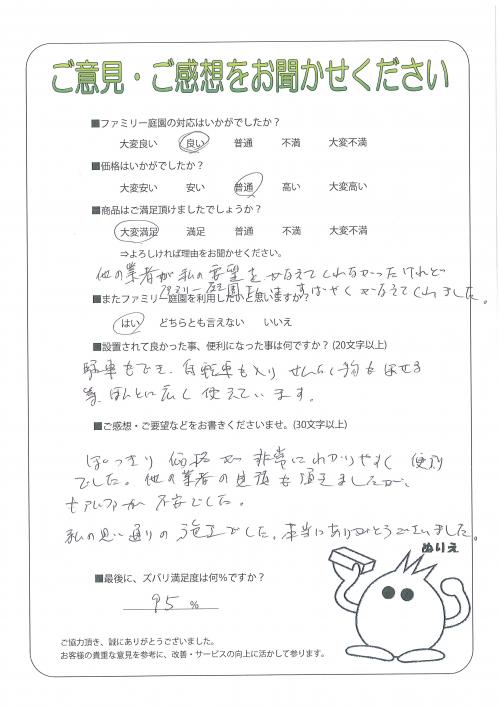 ご意見・ご感想をお聞かせください
■ファミリー庭園の対応はいかがでしたか？
大変良い 良い 普通 不満 大変不満
■価格はいかがでしたか？
大変安い 安い 普通 高い 大変高い
■商品はご満足頂けましたでしょうか？
大変満足 満足 普通 不満 大変不満
⇒よろしければ理由をお聞かせください。
他の業者が私の要望をかなえてくれなかったけれど
ファミリー庭園さんは、すばやくかなえてくれました。
■またファミリー庭園を利用したいと思いますか？
はい どちらとも言えない いいえ
■設置されて良かった事、便利になった事は何ですか？(20文字以上)
駐車もでき、自転車も入り せんたく物も干せる
等、ほんとに広く使えています。
■ご感想・ご要望などをお書きくださいませ。(30文字以上)
はっきり価格が非常にわかりやすく便利
でした。他の業者の見積も頂きましたが、
不安でした。
私の思い通りの施工でした。本当にありがとうございました。
ぬりえ
■最後に、ズバリ満足度は何%ですか？
95 %
ご協力頂き、誠にありがとうございました。
お客様の貴重な意見を参考に、改善・サービスの向上に活かして参ります。